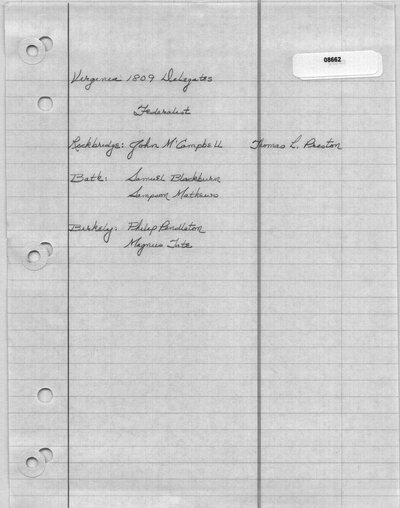 08662
Virginia 1809 Delegates
Federalist
Rockbridge: John McCampbell Thomas L. Preston
Bath: Samuel Blackburn
Sampson Mathews
Berkely: Philip Pendleton
Magnus Tate